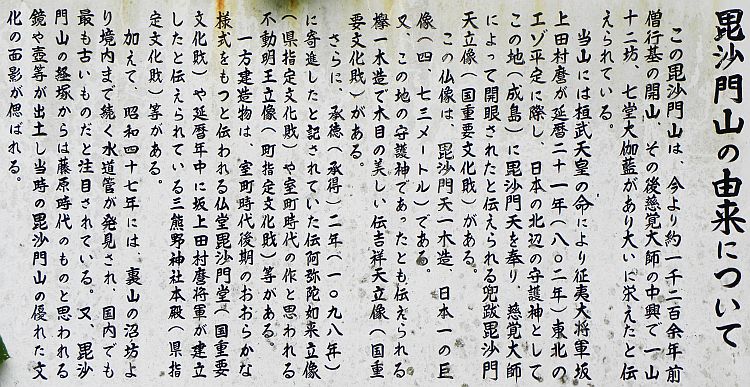 毘沙門山の由来について
この毘沙門山は、今より約一千二百余年前
僧行基の開山　その後慈覚大師の中興で一山
十二坊、七堂大伽藍があり大いに栄えたと伝
えられている。
当山には桓武天皇の命により征夷大将軍坂
上田村麿が延暦二十一年(八〇二年)東北の
エゾ平定に際し、日本の北辺の守護神として
この地(成島)に毘沙門天を奉り、慈覚大師
によって開眼されたと伝えられる兜跋毘沙門
天立像(国重要文化財)がある。
この仏像は、毘沙門天一木造、日本一の巨
像(四、七三メートル)である。
又、この地の守護神であったとも伝えられる
欅一木造で木目の美しい伝吉祥天立像(国重
要文化財)がある。
さらに、承徳(承得)二年(一〇九八年)
に寄進したと記されていた伝阿弥陀如来立像
(県指定文化財)や室町時代の作と思われる
不動明王立像(町指定文化財)等がある
一方建造物は　室町時代後期のおおらかな
様式をもつと伝われる仏堂毘沙門堂(国重要
文化財)や延暦年中に坂上田村麿将軍が建立
したと伝えられている三熊野神社本殿(県指
定文化財)等がある。
加えて、昭和四十七年には、裏山の沼坊よ
り境内まで続く水道管が発見され、国内でも
最も古いものだと注目されている。又、毘沙
門山の経塚からは藤原時代のものと思われる
鏡や壺等が出土し当時の毘沙門山の優れた文
化の面影が偲ばれる。